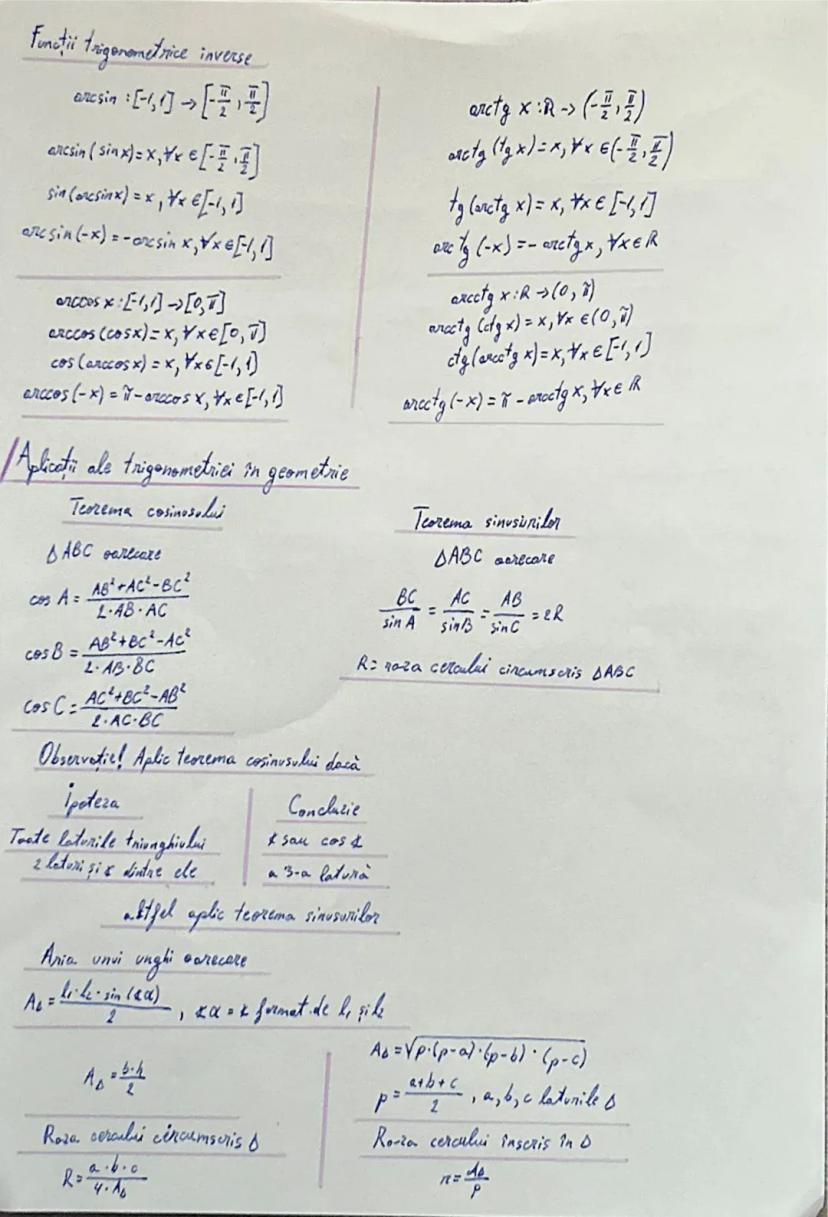 Funcții trigonometrice inverse
arcsin : [-1,1] → [-π/2, π/2]
arcsin(sin x) = x, ∀x ∈ [-π/2, π/2]
sin(arcsin x) = x, ∀x ∈ [-1,1]
arcsin(-x) = -arcsin x, ∀x ∈ [-1,1]
arccos x : [-1,1] → [0,π]
arccos(cos x) = x, ∀x ∈ [0,π]
cos(arccos x) = x, ∀x ∈ [-1,1]
arccos(-x) = π - arccos x, ∀x ∈ [-1,1]
arctg x : R → (-π/2, π/2)
arctg(tg x) = x, ∀x ∈ (-π/2, π/2)
tg(arctg x) = x, ∀x ∈ [-1,1]
arctg(-x) = -arctg x, ∀x ∈ R
arcctg x : R → (0,π)
arcctg(ctg x) = x, ∀x ∈ (0,π)
ctg(arcctg x) = x, ∀x ∈ [-1,1]
arcctg(-x) = π - arcctg x, ∀x ∈ R
Aplicații ale trigonometriei în geometrie
Teorema cosinusului
ΔABC oarecare
cos A = (AB²+AC²-BC²)/(2·AB·AC)
cos B = (AB²+BC²-AC²)/(2·AB·BC)
cos C = (AC²+BC²-AB²)/(2·AC·BC)
Teorema sinusurilor
ΔABC oarecare
BC/sin A = AC/sin B = AB/sin C = 2R
R = raza cercului circumscris ΔABC
Observație! Aplic teorema cosinusului dacă
Ipoteza
Concluzie
Toate laturile triunghiului
∢ sau cos ∢
2 laturi și ∢ dintre ele
a 3-a latură
altfel aplic teorema sinusurilor
Aria unui unghi oarecare
A_Δ = (l₁·l₂·sin(∢α))/2, ∢α = ∢ format de l₁ și l₂
A_Δ = (b·h)/2
A_Δ = √(p·(p-a)·(p-b)·(p-c))
p = (a+b+c)/2, a, b, c laturile Δ
Raza cercului circumscris Δ
R = (a·b·c)/(4·A_Δ)
Raza cercului înscris în Δ
r = A_Δ/p